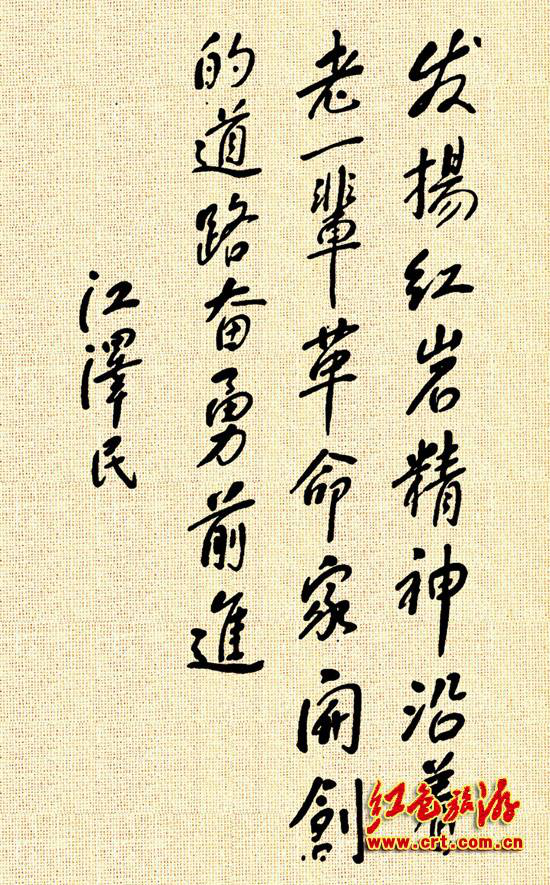 发揚红岩精神沿着
老一辈革命家开創
的道路奋勇前進
江澤民
红色旅游
www.crt.com.cn